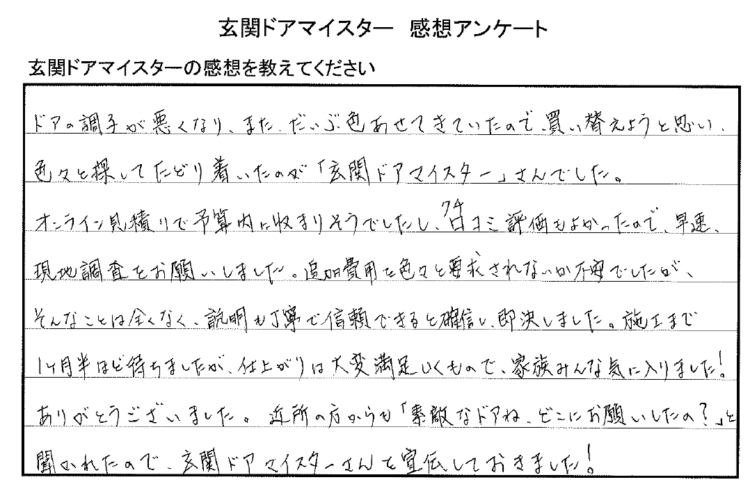 玄関ドアマイスター 感想アンケート
玄関ドアマイスターの感想を教えてください
ドアの調子が悪くなり、また、だいぶ色あせてきていたので、買い替えようと思い、
色々と探してたどり着いたのが「玄関ドアマイスター」さんでした。
オンライン見積りで予算内に収まりそうでしたし、口コミ評価もよかったので、早速、
クチ
現地調査をお願いしました。追加費用を色々と要求されないか不安でしたが、
そんなことは全くなく、説明も丁寧で信頼できると確信し、即決しました。施工まで
1ヶ月半ほど待ちましたが、仕上がりは大変満足いくもので、家族みんな気に入りました!
ありがとうございました。近所の方からも「素敵なドアね、どこにお願いしたの?」と
聞かれたので、玄関ドアマイスターさんと宣伝しておきました!